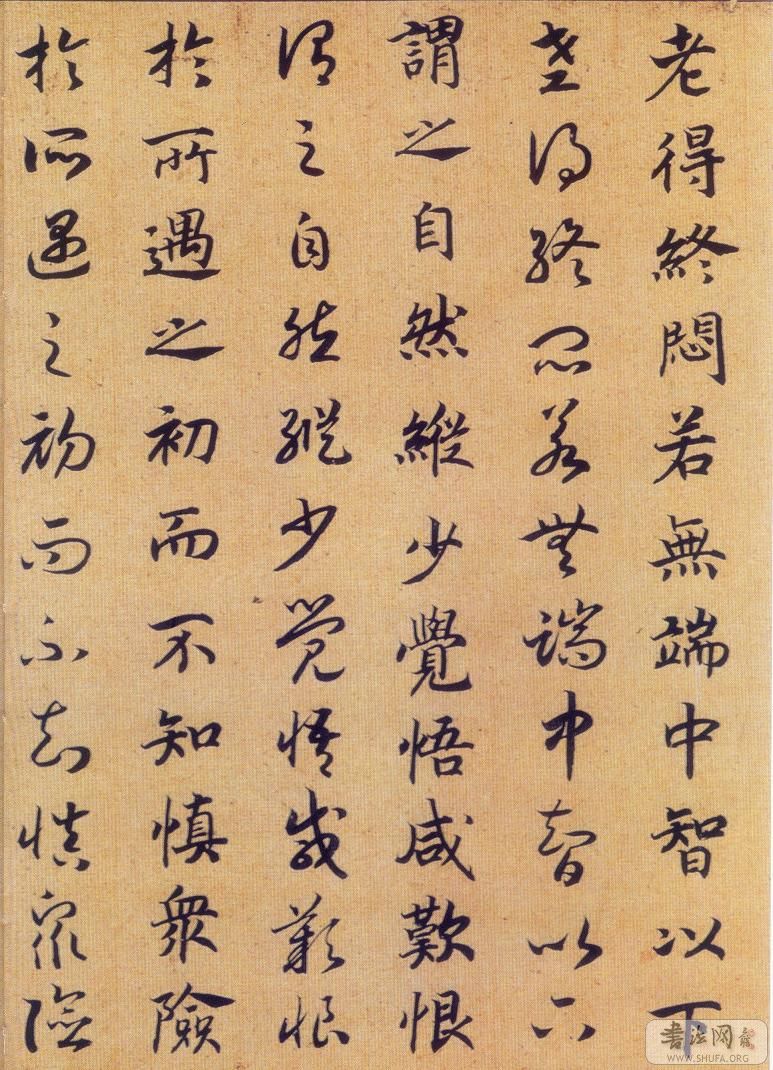 老得終悶若無端中智以下
老得終悶若無端中智以下
謂之自然縱少覺悟咸歎恨
謂之自然縱少覺悟咸歎恨
於所遇之初而不知慎眾險
於所遇之初而不知慎眾險
書法网
WWW.SHUFA.ORG